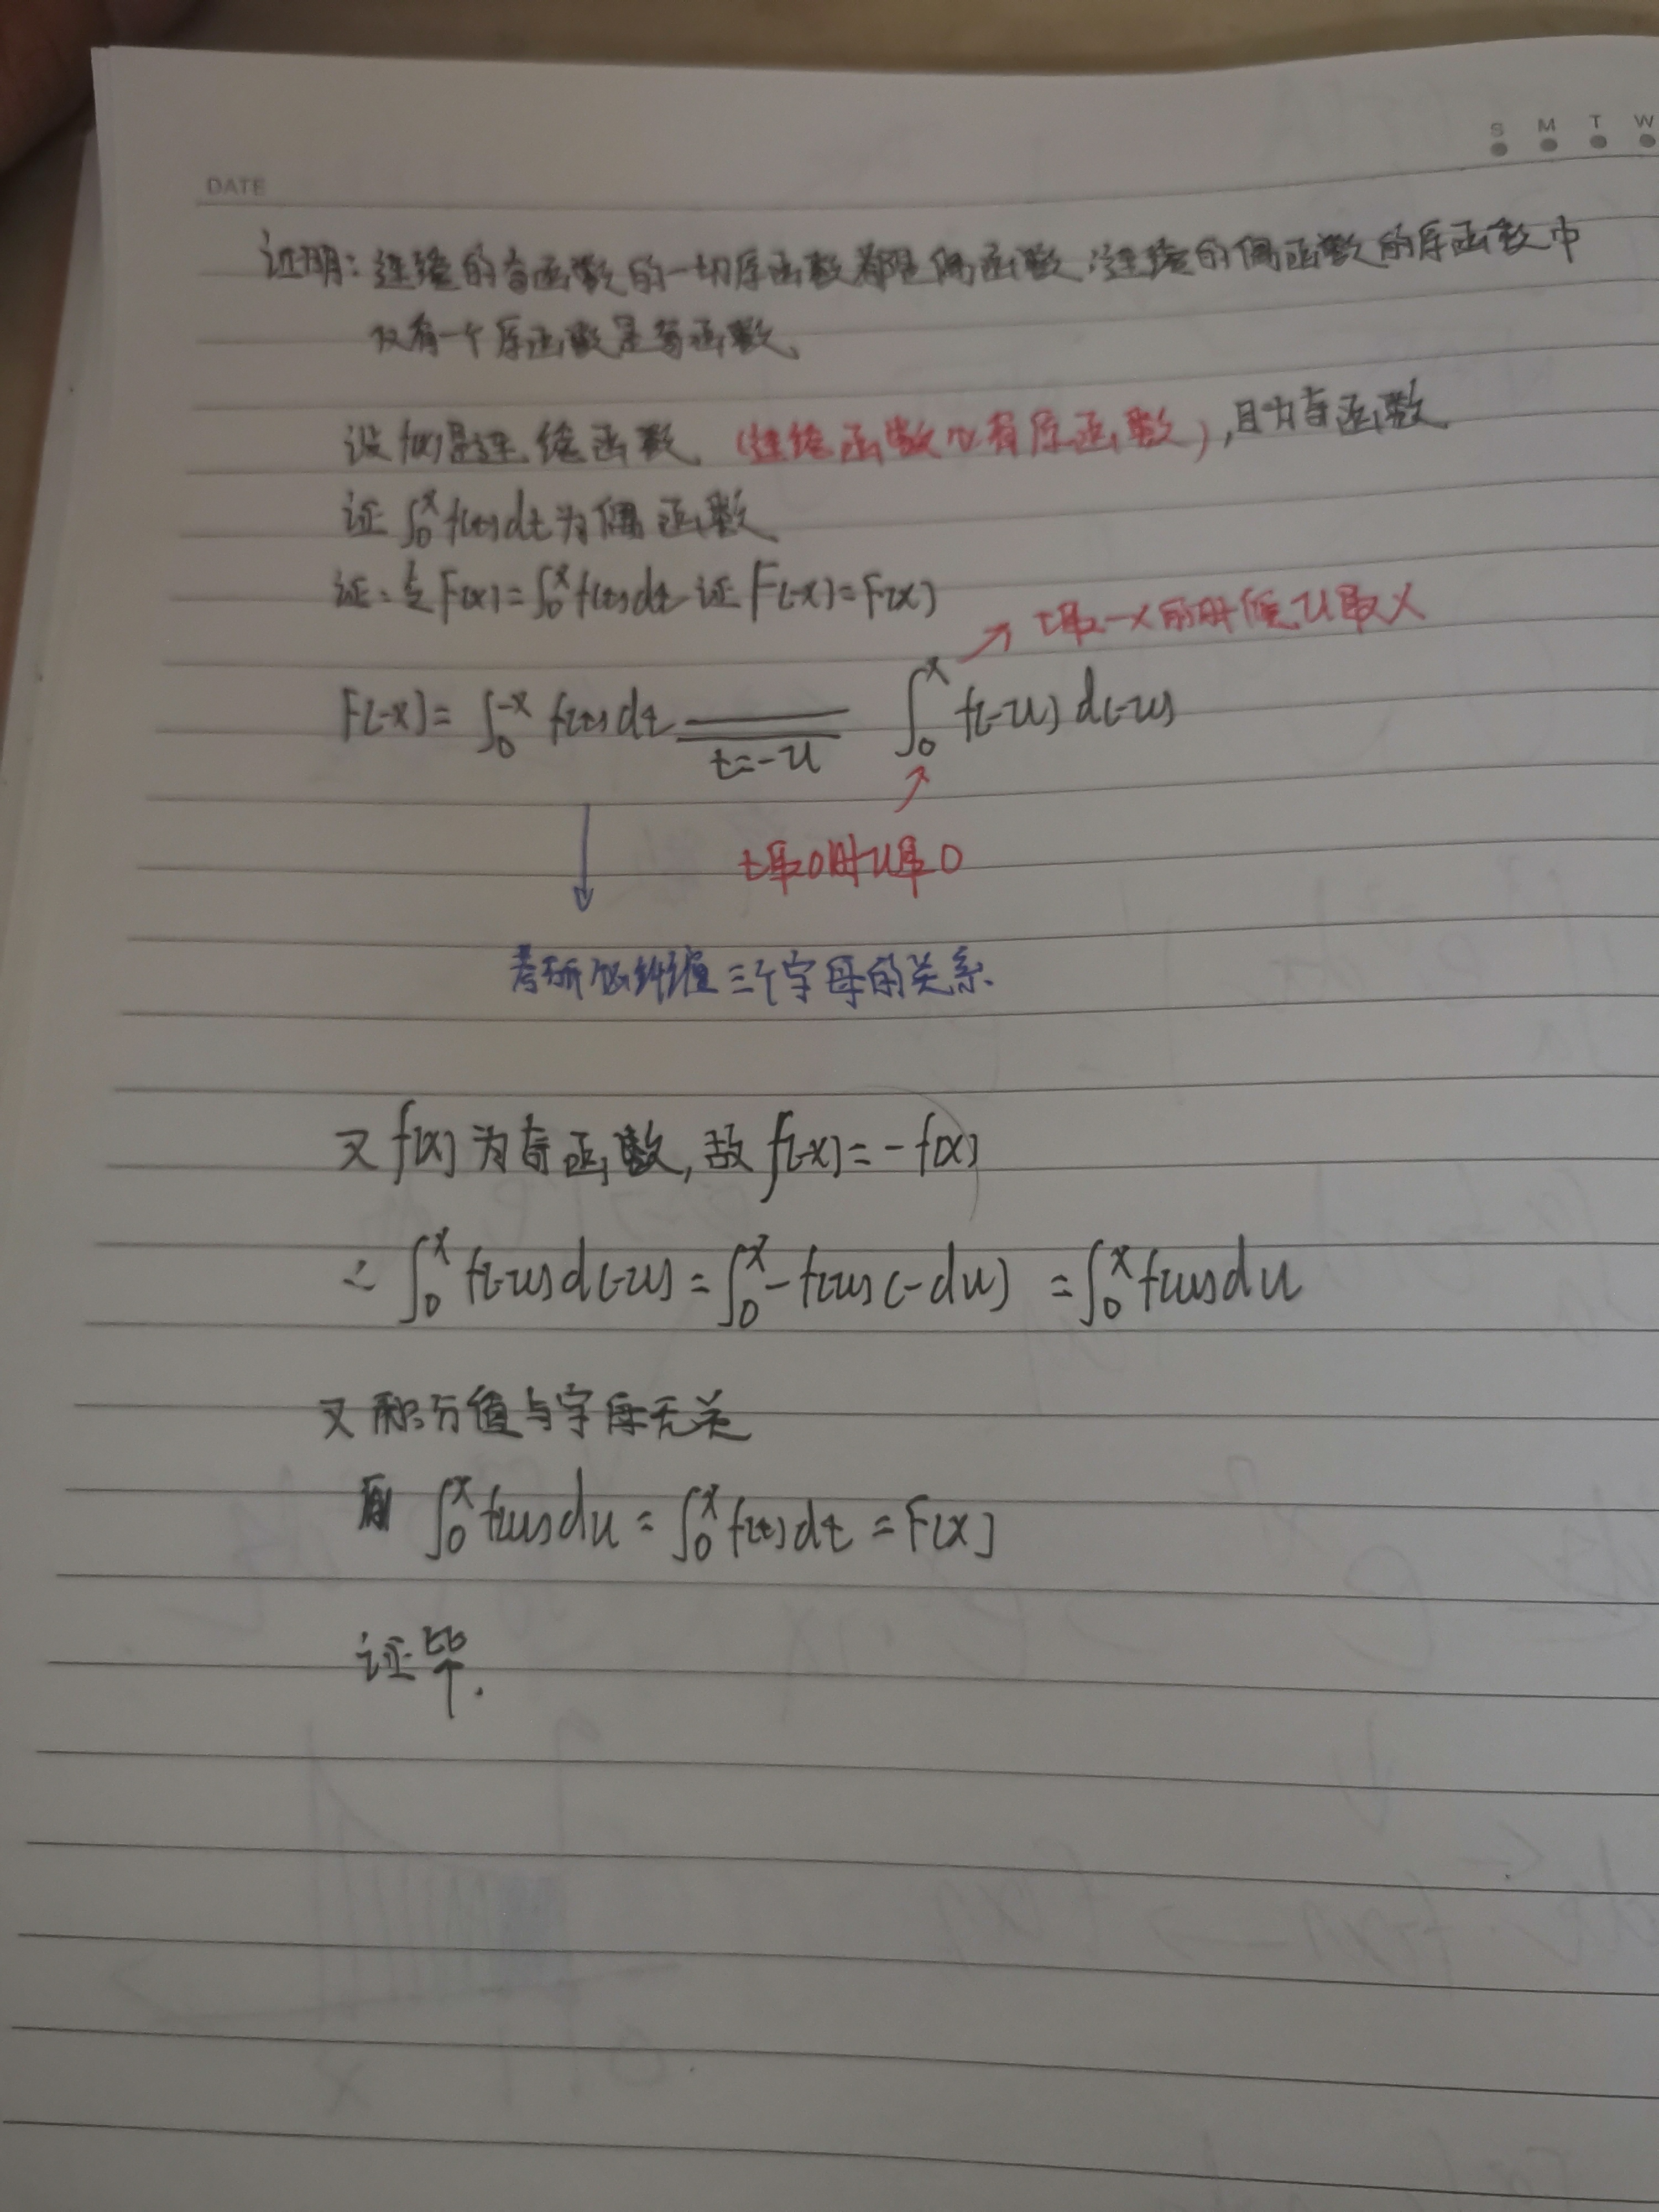 S M T W
DATE
证明：连续的奇函数的一切原函数都是偶函数；连续的偶函数的原函数中
仅有一个原函数是奇函数、
设f(x)是连续函数（连续函数必有原函数），且为奇函数
证∫₀ˣ f(t)dt为偶函数
证：令F(x)=∫₀ˣ f(t)dt 证 F(-x)=F(x)
t取-x的时候，u取x
F(-x)=∫₀⁻ˣ f(t)dt ══ t=-u ∫₀ˣ f(-u)d(-u)
t取0时u取0
考研 三个字母的关系.
又f(x)为奇函数,故f(-x)=-f(x)
∴ ∫₀ˣ f(-u)d(-u)=∫₀ˣ -f(u)(-du) =∫₀ˣ f(u)du
又积分值与字母无关
∫₀ˣ f(u)du=∫₀ˣ f(t)dt=F(x)
证毕.